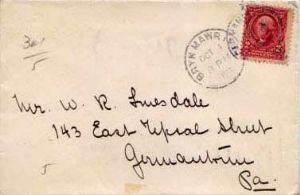 3ar
BRYN MAWR
OCT
PM
2
Mr. W. R. Linesdale
143 East Upsal Street
Germantown
Pa.
5